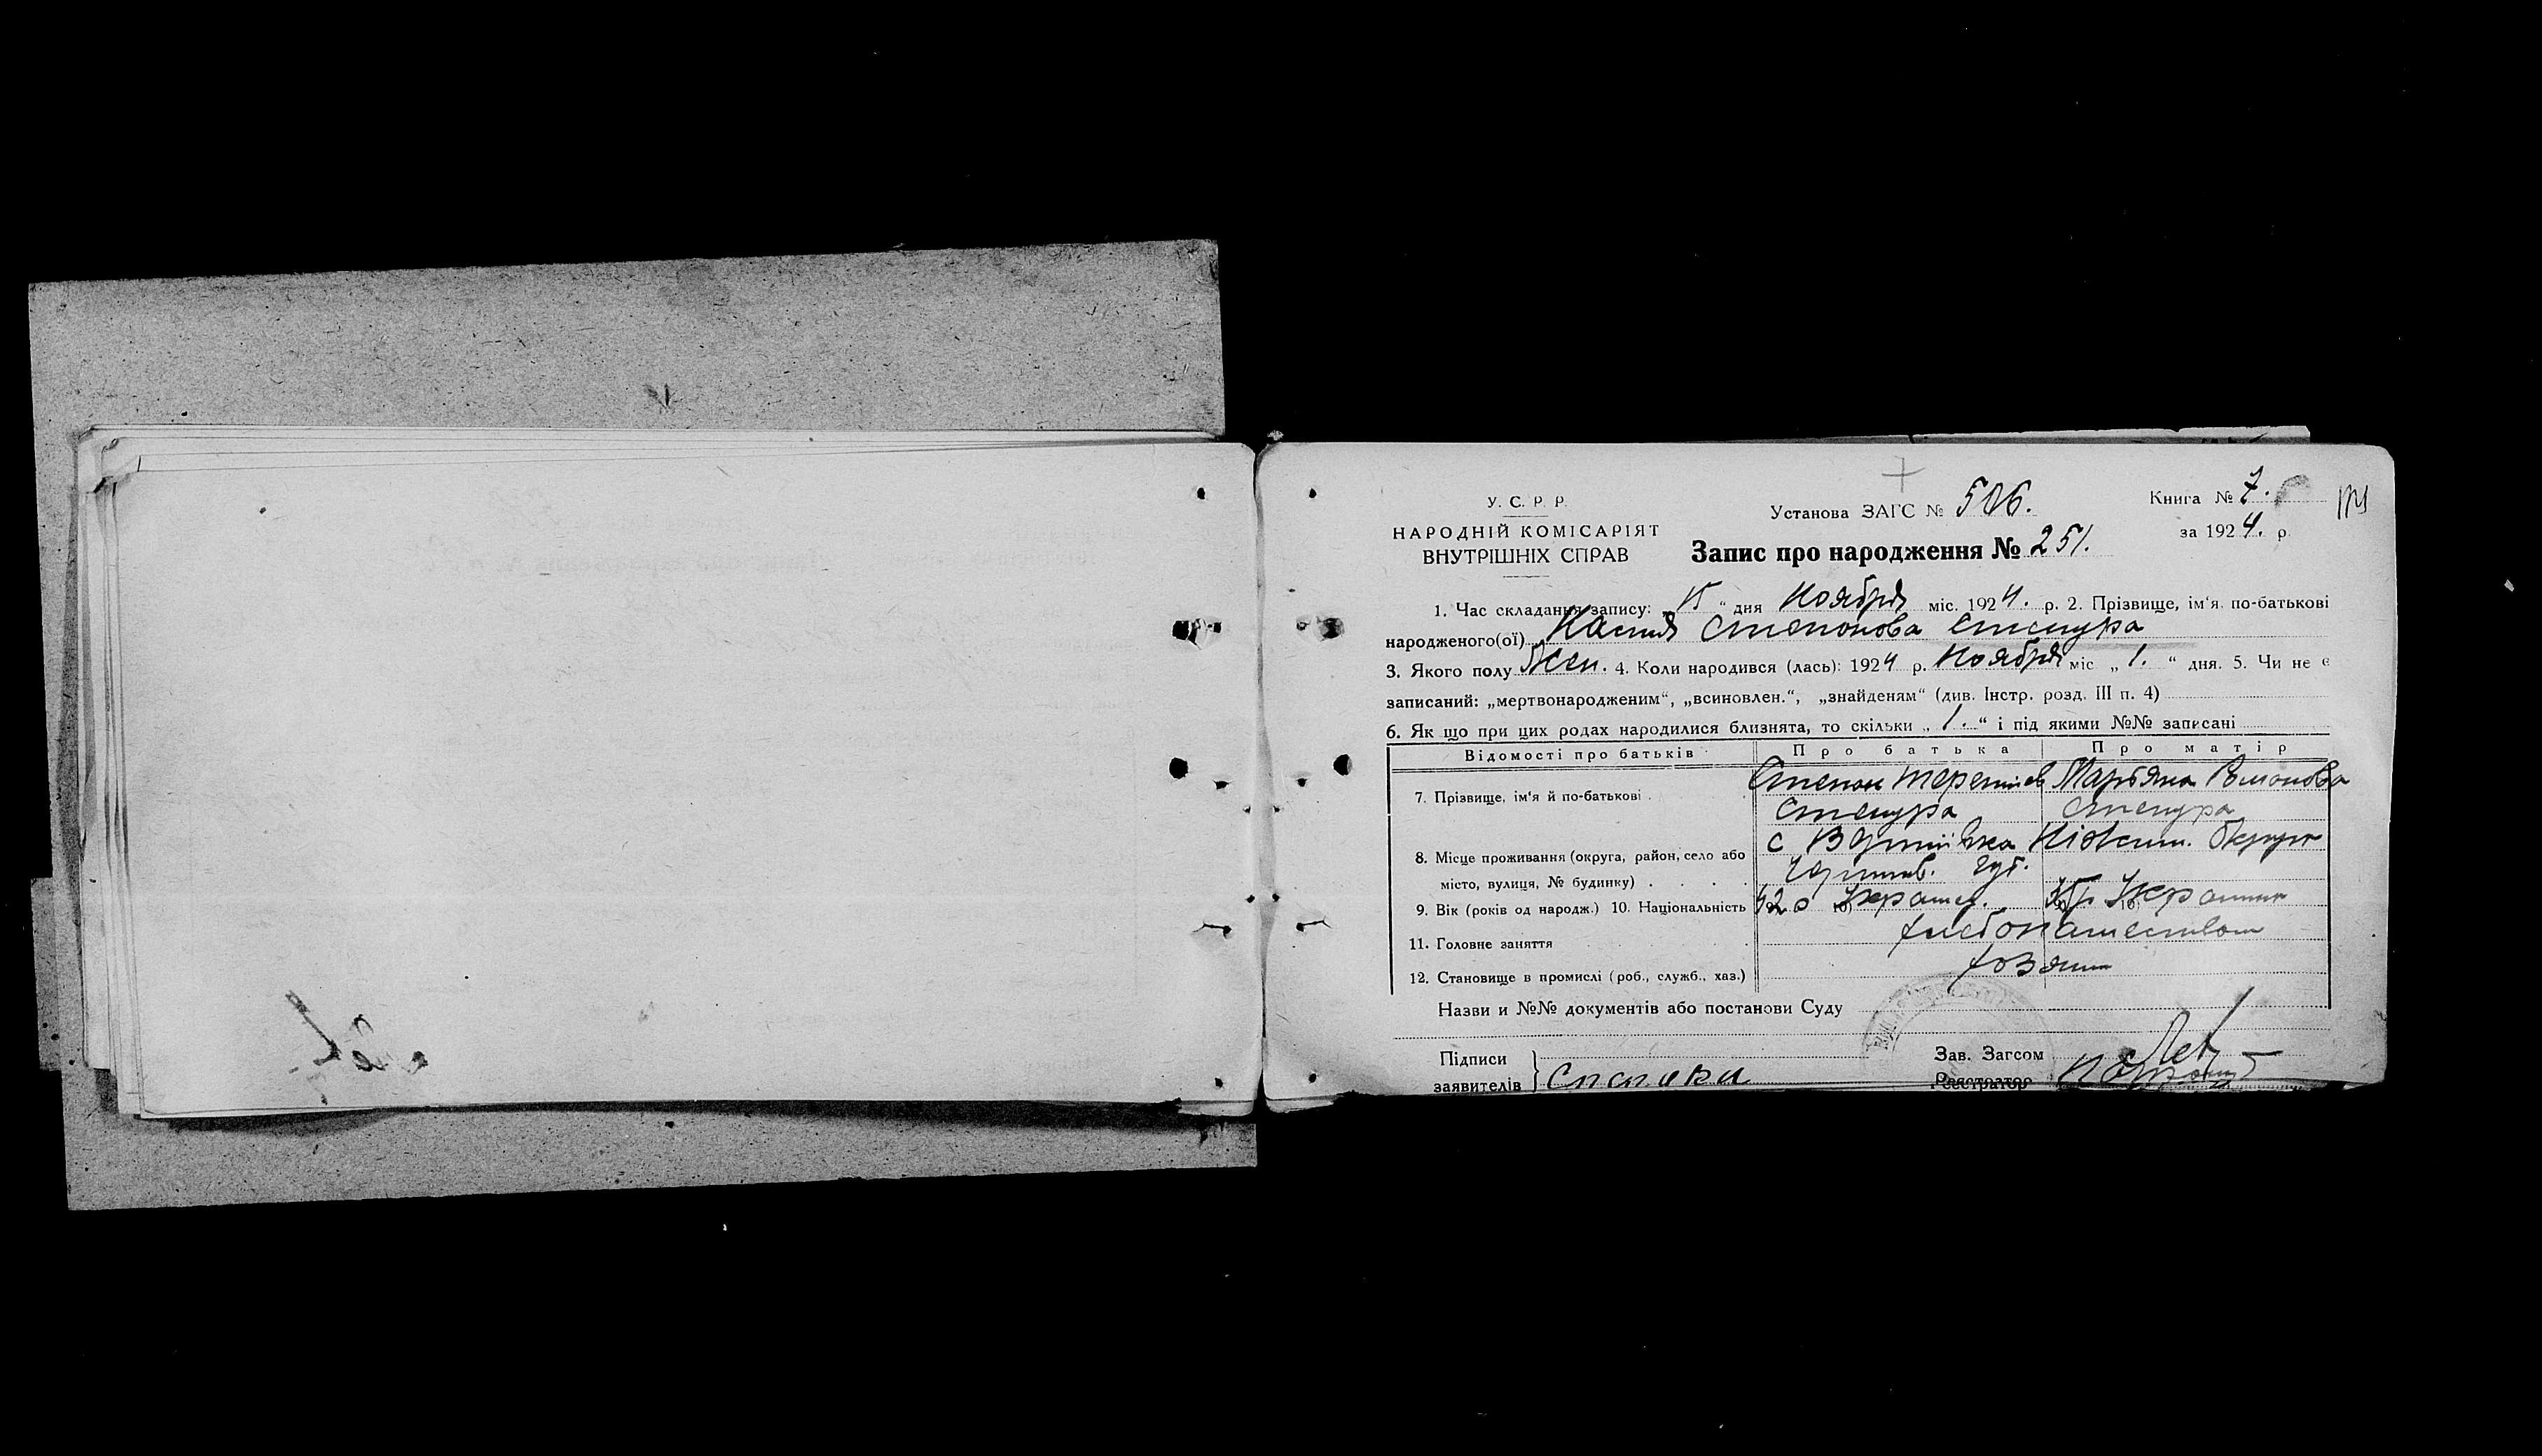 У. С. Р. Р.
НАРОДНІЙ КОМІСАРІЯТ
ВНУТРІШНІХ СПРАВ
Установа ЗАГС № 506.
Запис про народження № 251.
Книга № 7.
за 1924. р.
1. Час складання запису: „15“ дня Ноября міс. 1924. р. 2. Прізвище, ім'я по-батькові
народженого(ої) Настя Степонова Стецура
3. Якого полу Жен. 4. Коли народився (лась): 1924 р. Ноября міс „1.“ дня. 5. Чи не є
записаний: „мертвонародженим“, „всиновлен.“, „знайденям“ (див. Інстр. розд. III п. 4)
6. Як що при цих родах народилися близнята, то скільки „1.“ і під якими №№ записані
Відомості про батьків Про батька Про матір
7. Прізвище, ім'я й по-батькові Степан Марьяна
Стецура Стецура
8. Місце проживання (округа, район, село або с Вертіївка Ніжин. Округи
місто, вулиця, № будинку) Черниг. губ.
9. Вік (років од народж.) 10. Національність 42 10)
11. Головне заняття
12. Становище в промислі (роб., служб., хаз.) хозяин
Назви и №№ документів або постанови Суду
Підписи
заявителів
Зав. Загсом
Реєстратор